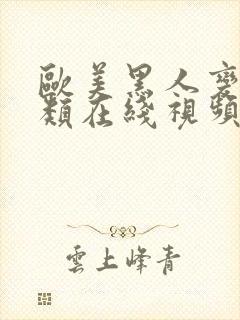 歐美黑人褻
類在綫視頻
雲上峰青